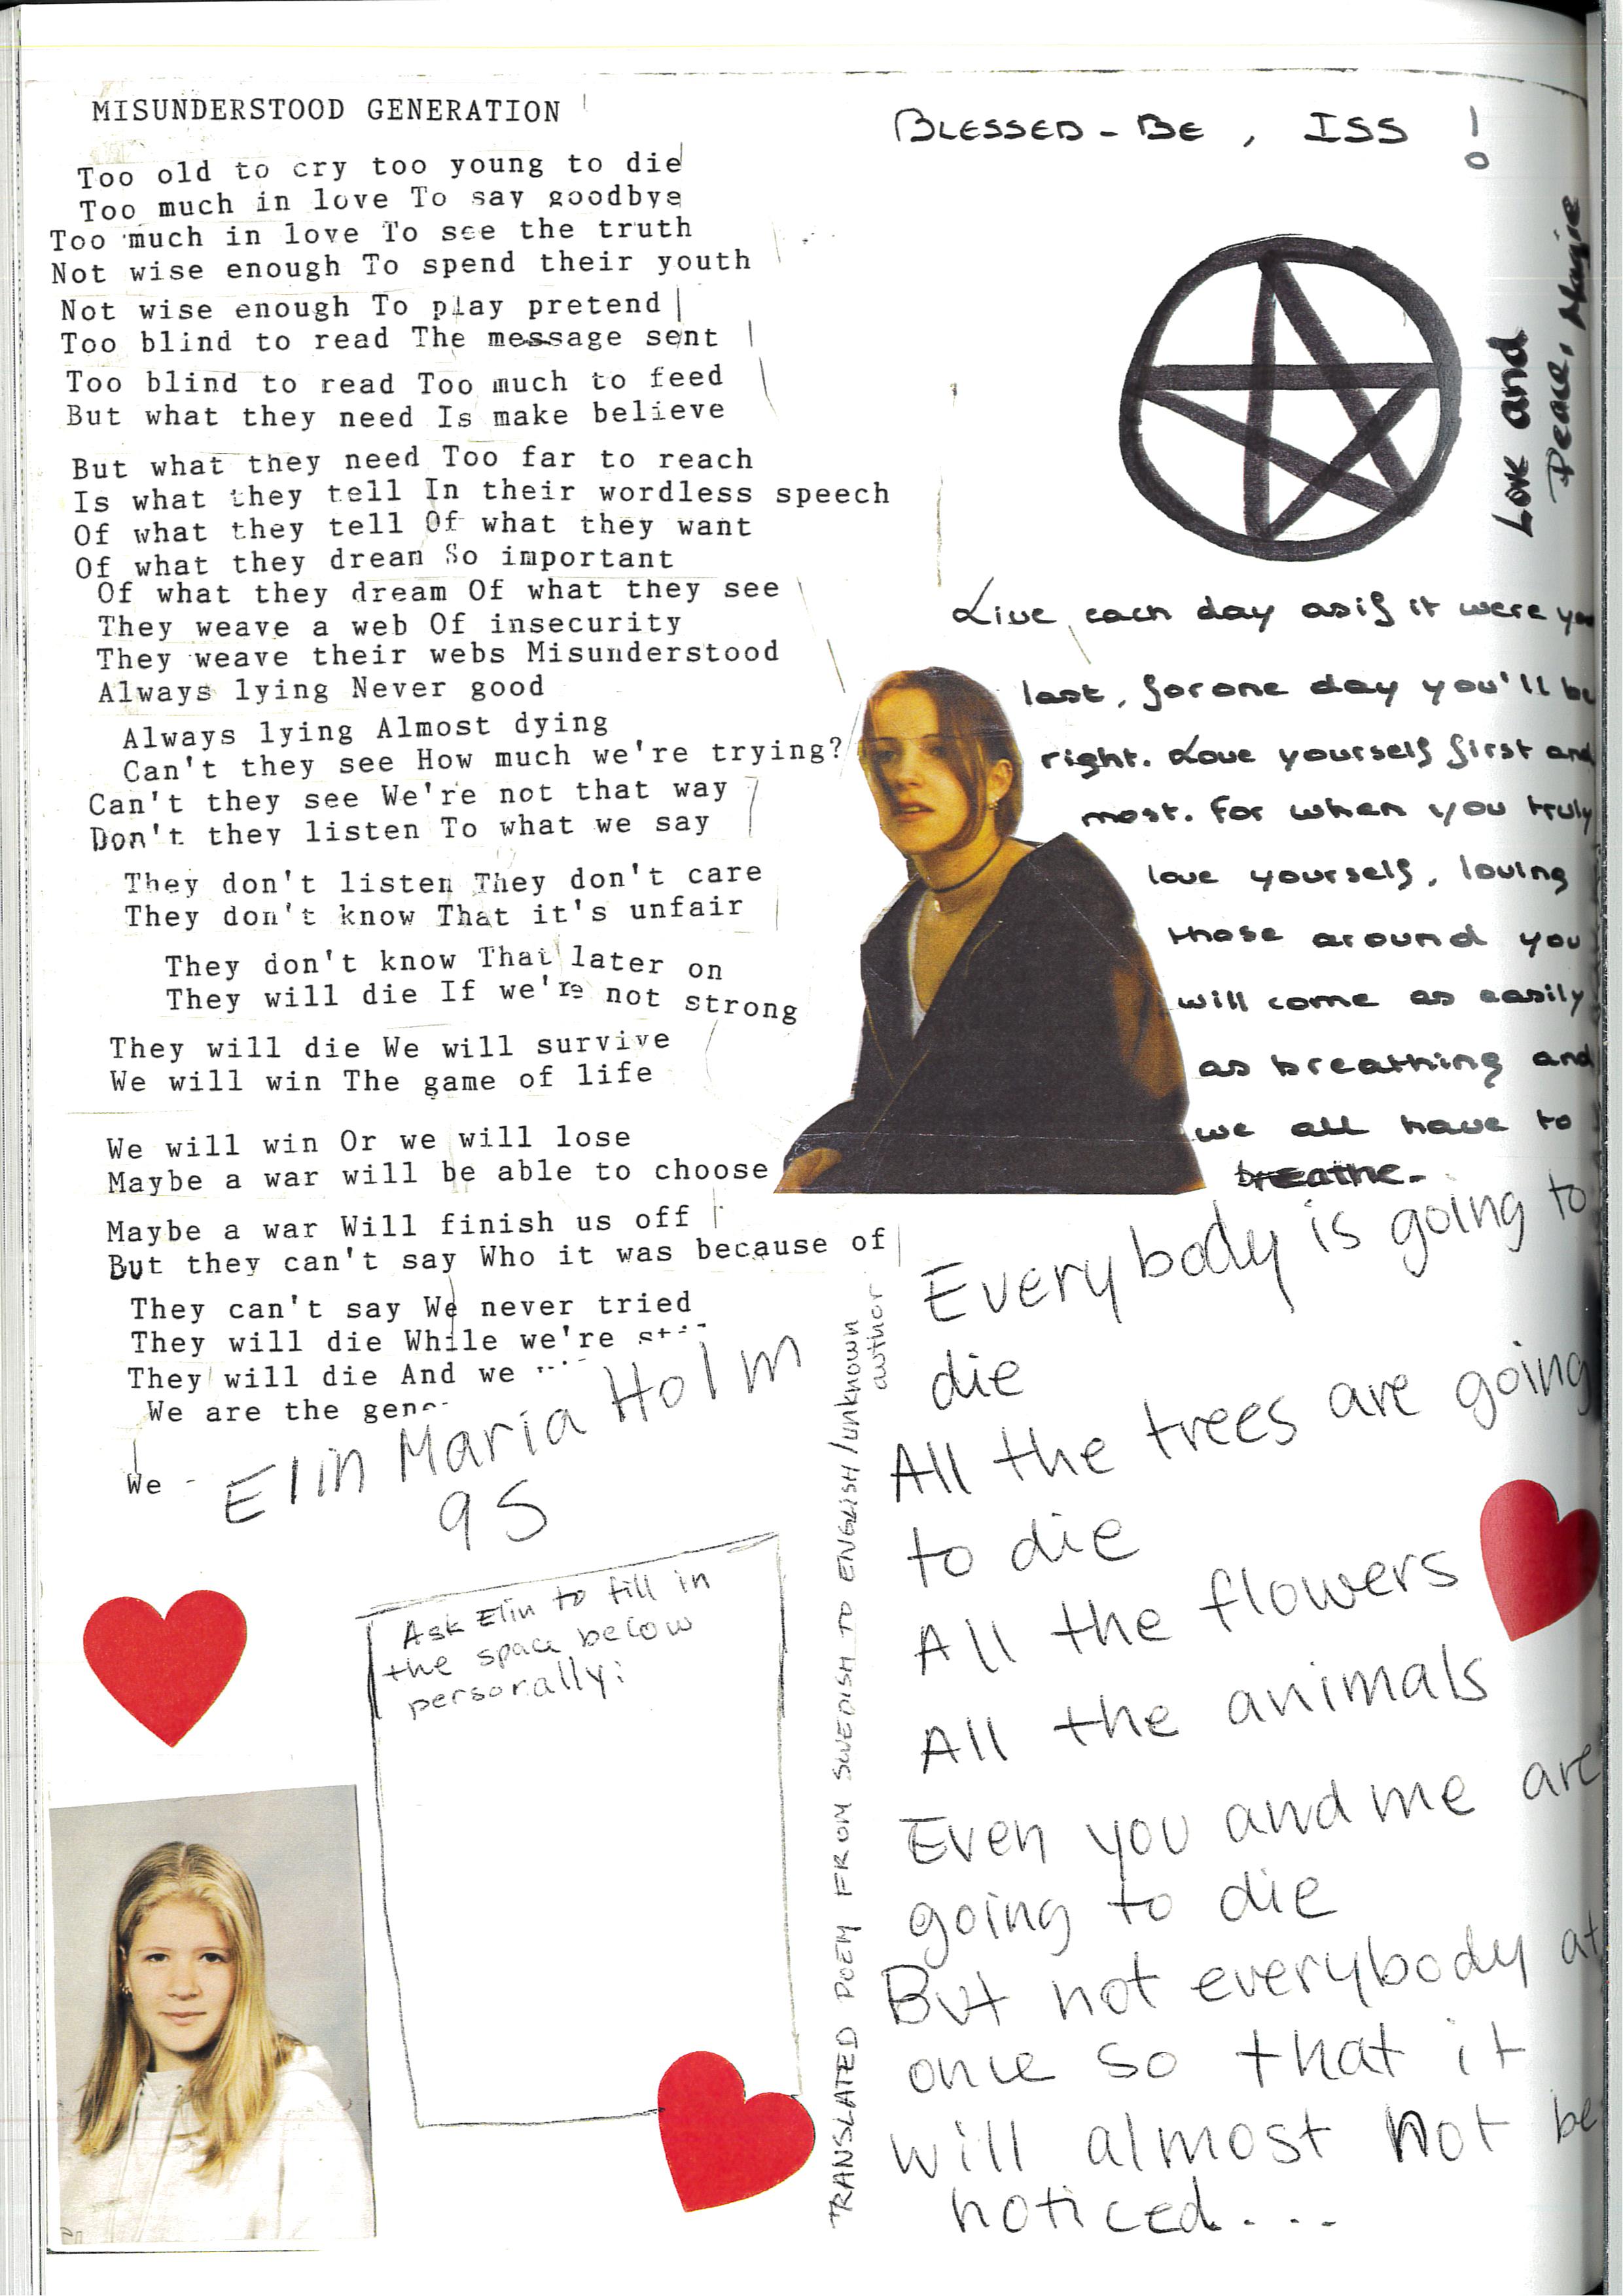 MISUNDERSTOOD GENERATION
Too old to cry too young to die
Too much in love To say goodbye
Too much in love To see the truth
Not wise enough To spend their youth
Not wise enough To play pretend
Too blind to read The message sent
Too blind to read Too much to feed
But what they need Is make believe
But what they need Too far to reach
Is what they tell In their wordless speech
Of what they tell Of what they want
Of what they dream So important
Of what they dream Of what they see
They weave a web Of insecurity
They weave their webs Misunderstood
Always lying Never good
Always lying Almost dying
Can't they see How much we're trying?
Can't they see We're not that way
Don't they listen To what we say
They don't listen They don't care
They don't know That it's unfair
They don't know That later on
They will die If we're not strong
They will die We will survive
We will win The game of life
We will win Or we will lose
Maybe a war will be able to choose
Maybe a war Will finish us off
But they can't say Who it was because of
They can't say We never tried
They will die While we're
They will die And we
We are the
We
Elin Maria Holm
95
Ask Elin to fill in
the space below
personally:
BLESSED-BE, ISS !
Love and
Peace, Maggie
Live each day as if it were
last, for one day you'll be
right. Love yourself first and
most. For when you truly
love yourself, loving
those around you
will come as easily
as breathing and
we all have to
breathe.
TRANSLATED POEM FROM SWEDISH TO ENGLISH/unknown
author
Everybody is going to
die
All the trees are going
to die
All the flowers
All the animals
Even you and me are
going to die
But not everybody at
once so that it
will almost not be
noticed...